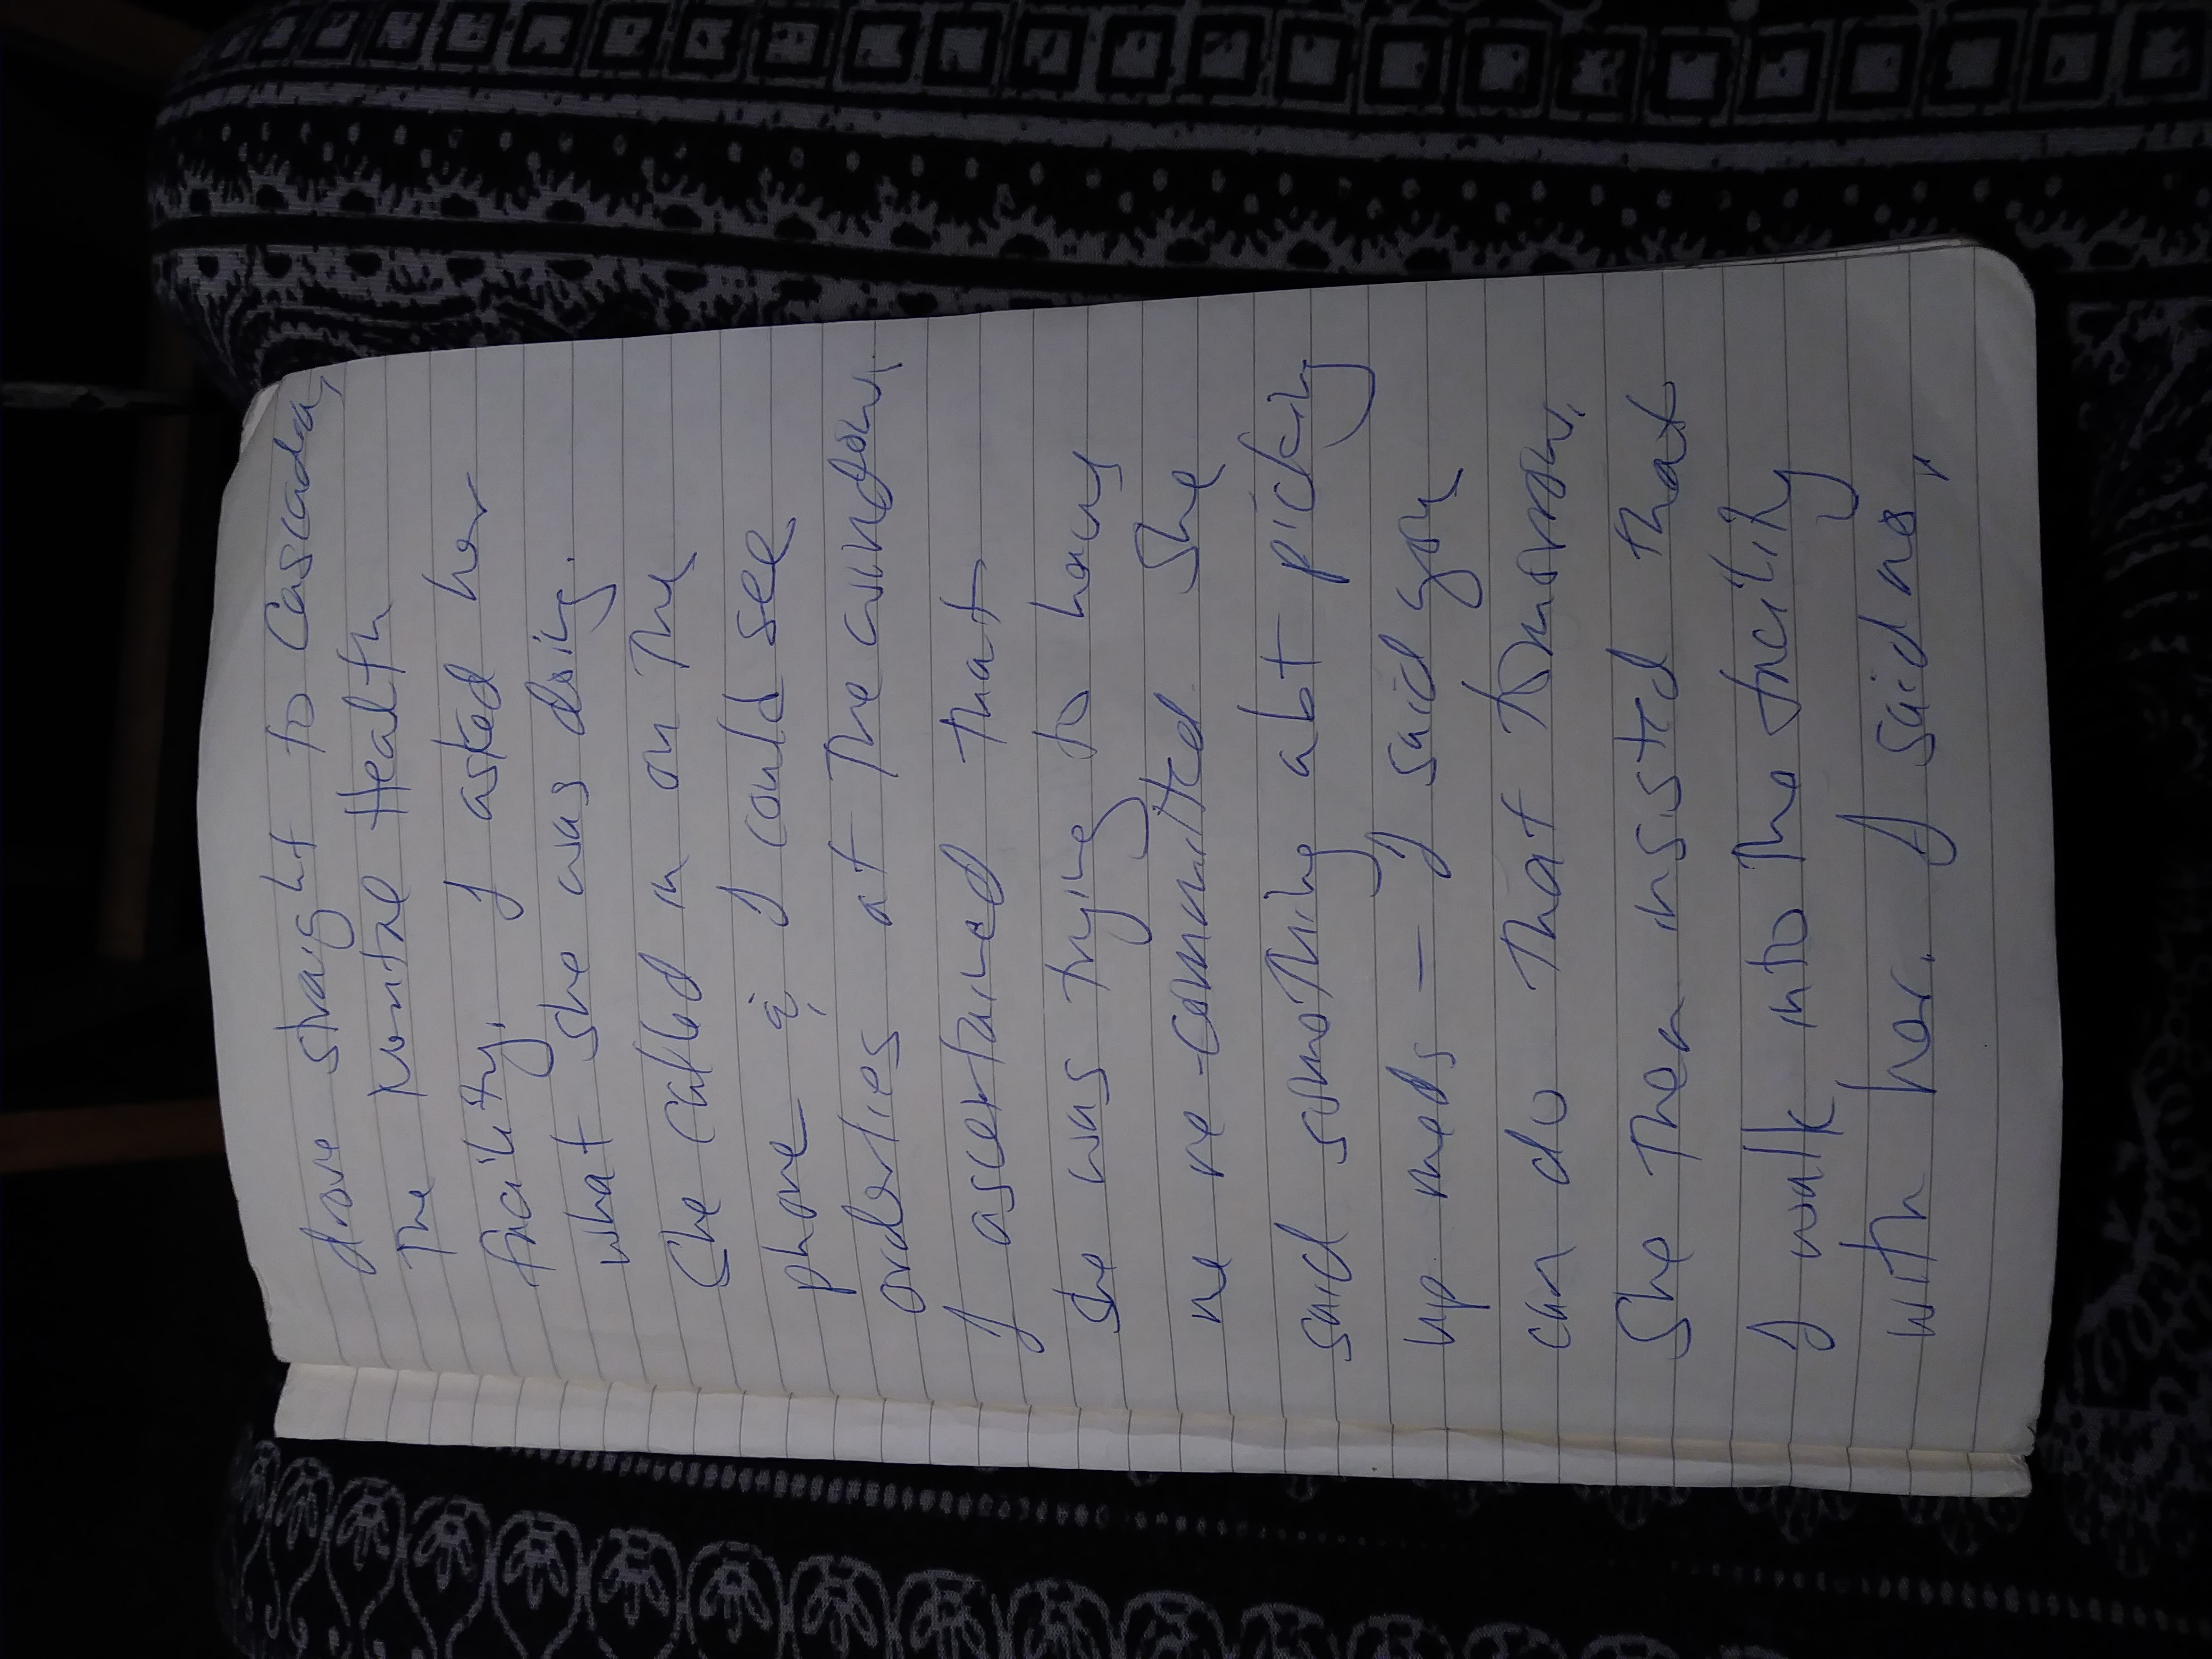 drove straight to Cascada,
The Mental Health
facility. I asked her
what she was doing.
She called in on The
phone & I could see
orderlies at The window.
I ascertained That
she was trying to have
me re-committed. She
said something abt picking
up meds – I said you
can do That tomorrow.
She Then insisted That
I walk into The facility
with her. I said no,